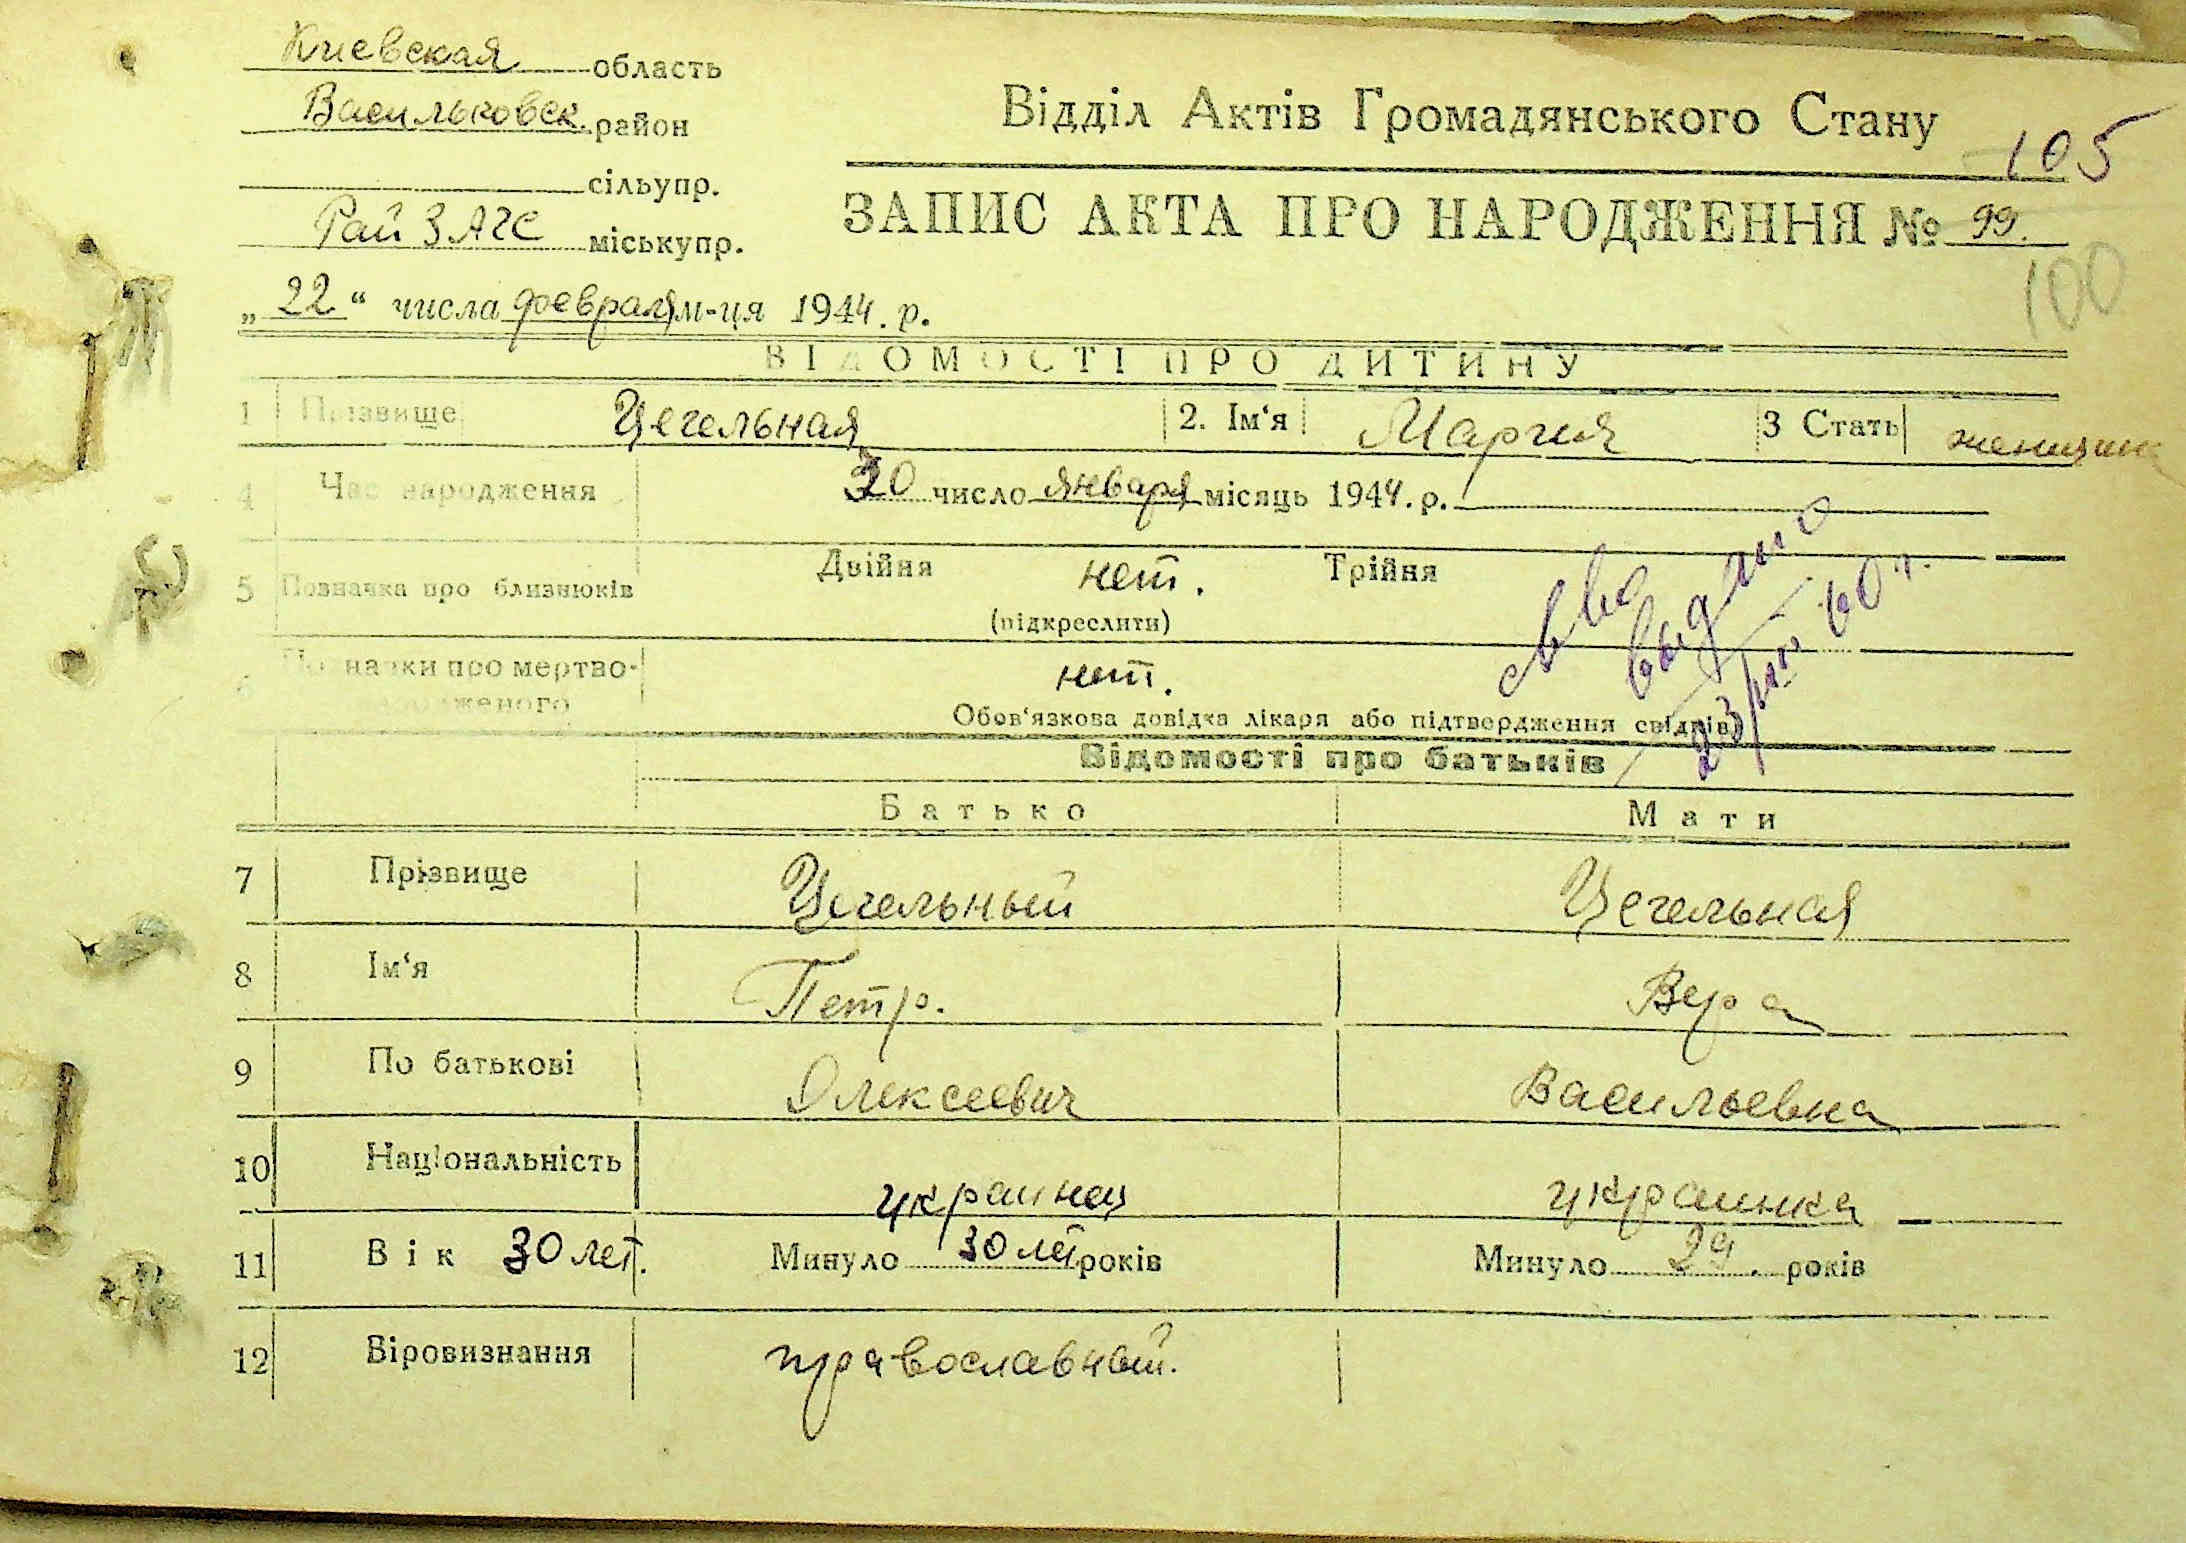 Киевская область
Васильковск. район
сільупр.
Рай ЗАГС міськупр.
„22“ числа февраля м-ця 1944. р.
Відділ Актів Громадянського Стану
105
ЗАПИС АКТА ПРО НАРОДЖЕННЯ № 99.
100
ВІДОМОСТІ ПРО ДИТИНУ
1 Прізвище Цегельная 2. Ім‘я Мария 3 Стать женщина
4 Час народження 30 число января місяць 1944. р.
5 Позначка про близнюків Двійня нет. Трійня
(підкреслити)
6 Позначки про мертво-
народженого нет.
Обов‘язкова довідка лікаря або підтвердження свідків
св-во
выдано
60 г.
Відомості про батьків
Батько Мати
7 Прізвище Цегельный Цегельная
8 Ім‘я Петр. Вера
9 По батькові Олексеевич Васильевна
10 Національність украинец украинка
11 Вік 30 лет. Минуло 30 лет років Минуло 29. років
12 Віровизнання православный.